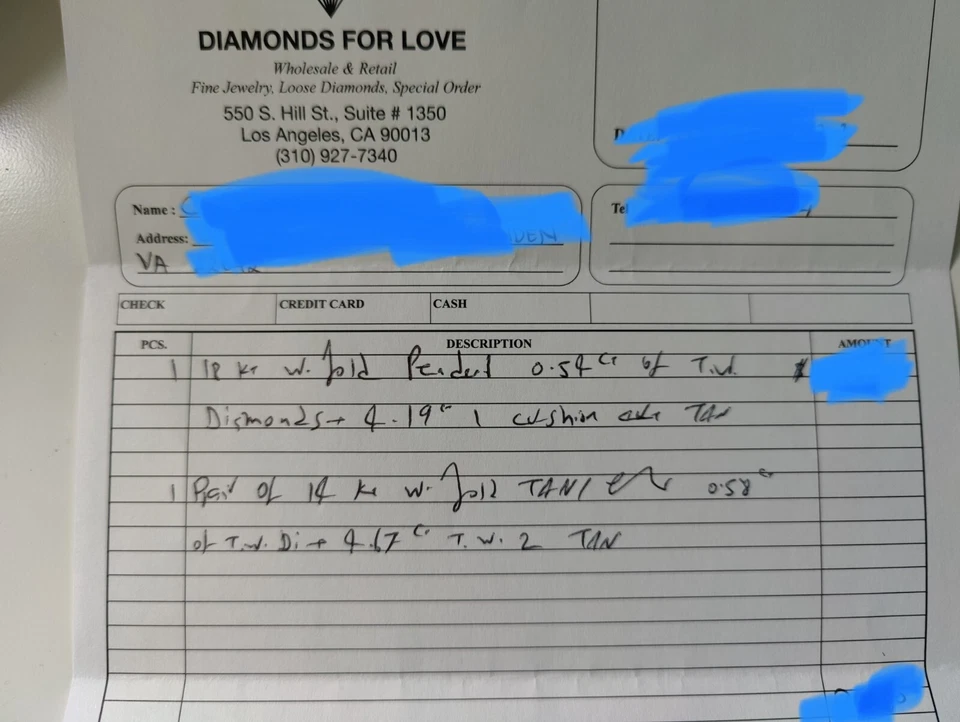 DIAMONDS FOR LOVE
Wholesale & Retail
Fine Jewelry, Loose Diamonds, Special Order
550 S. Hill St., Suite # 1350
Los Angeles, CA 90013
(310) 927-7340
Name :
Tel
Address:
VA
CHECK CREDIT CARD CASH
PCS. DESCRIPTION AMOUNT
1 18 Kt W. Gold Pendent 0.54 ct of T.W. $
Diamonds + 4.19 ct 1 cushion cut TAN
1 Pair of 14 Kt W. Gold TAN/ 0.58 ct
of T.W. Di + 4.67 ct T.W. 2 TAN